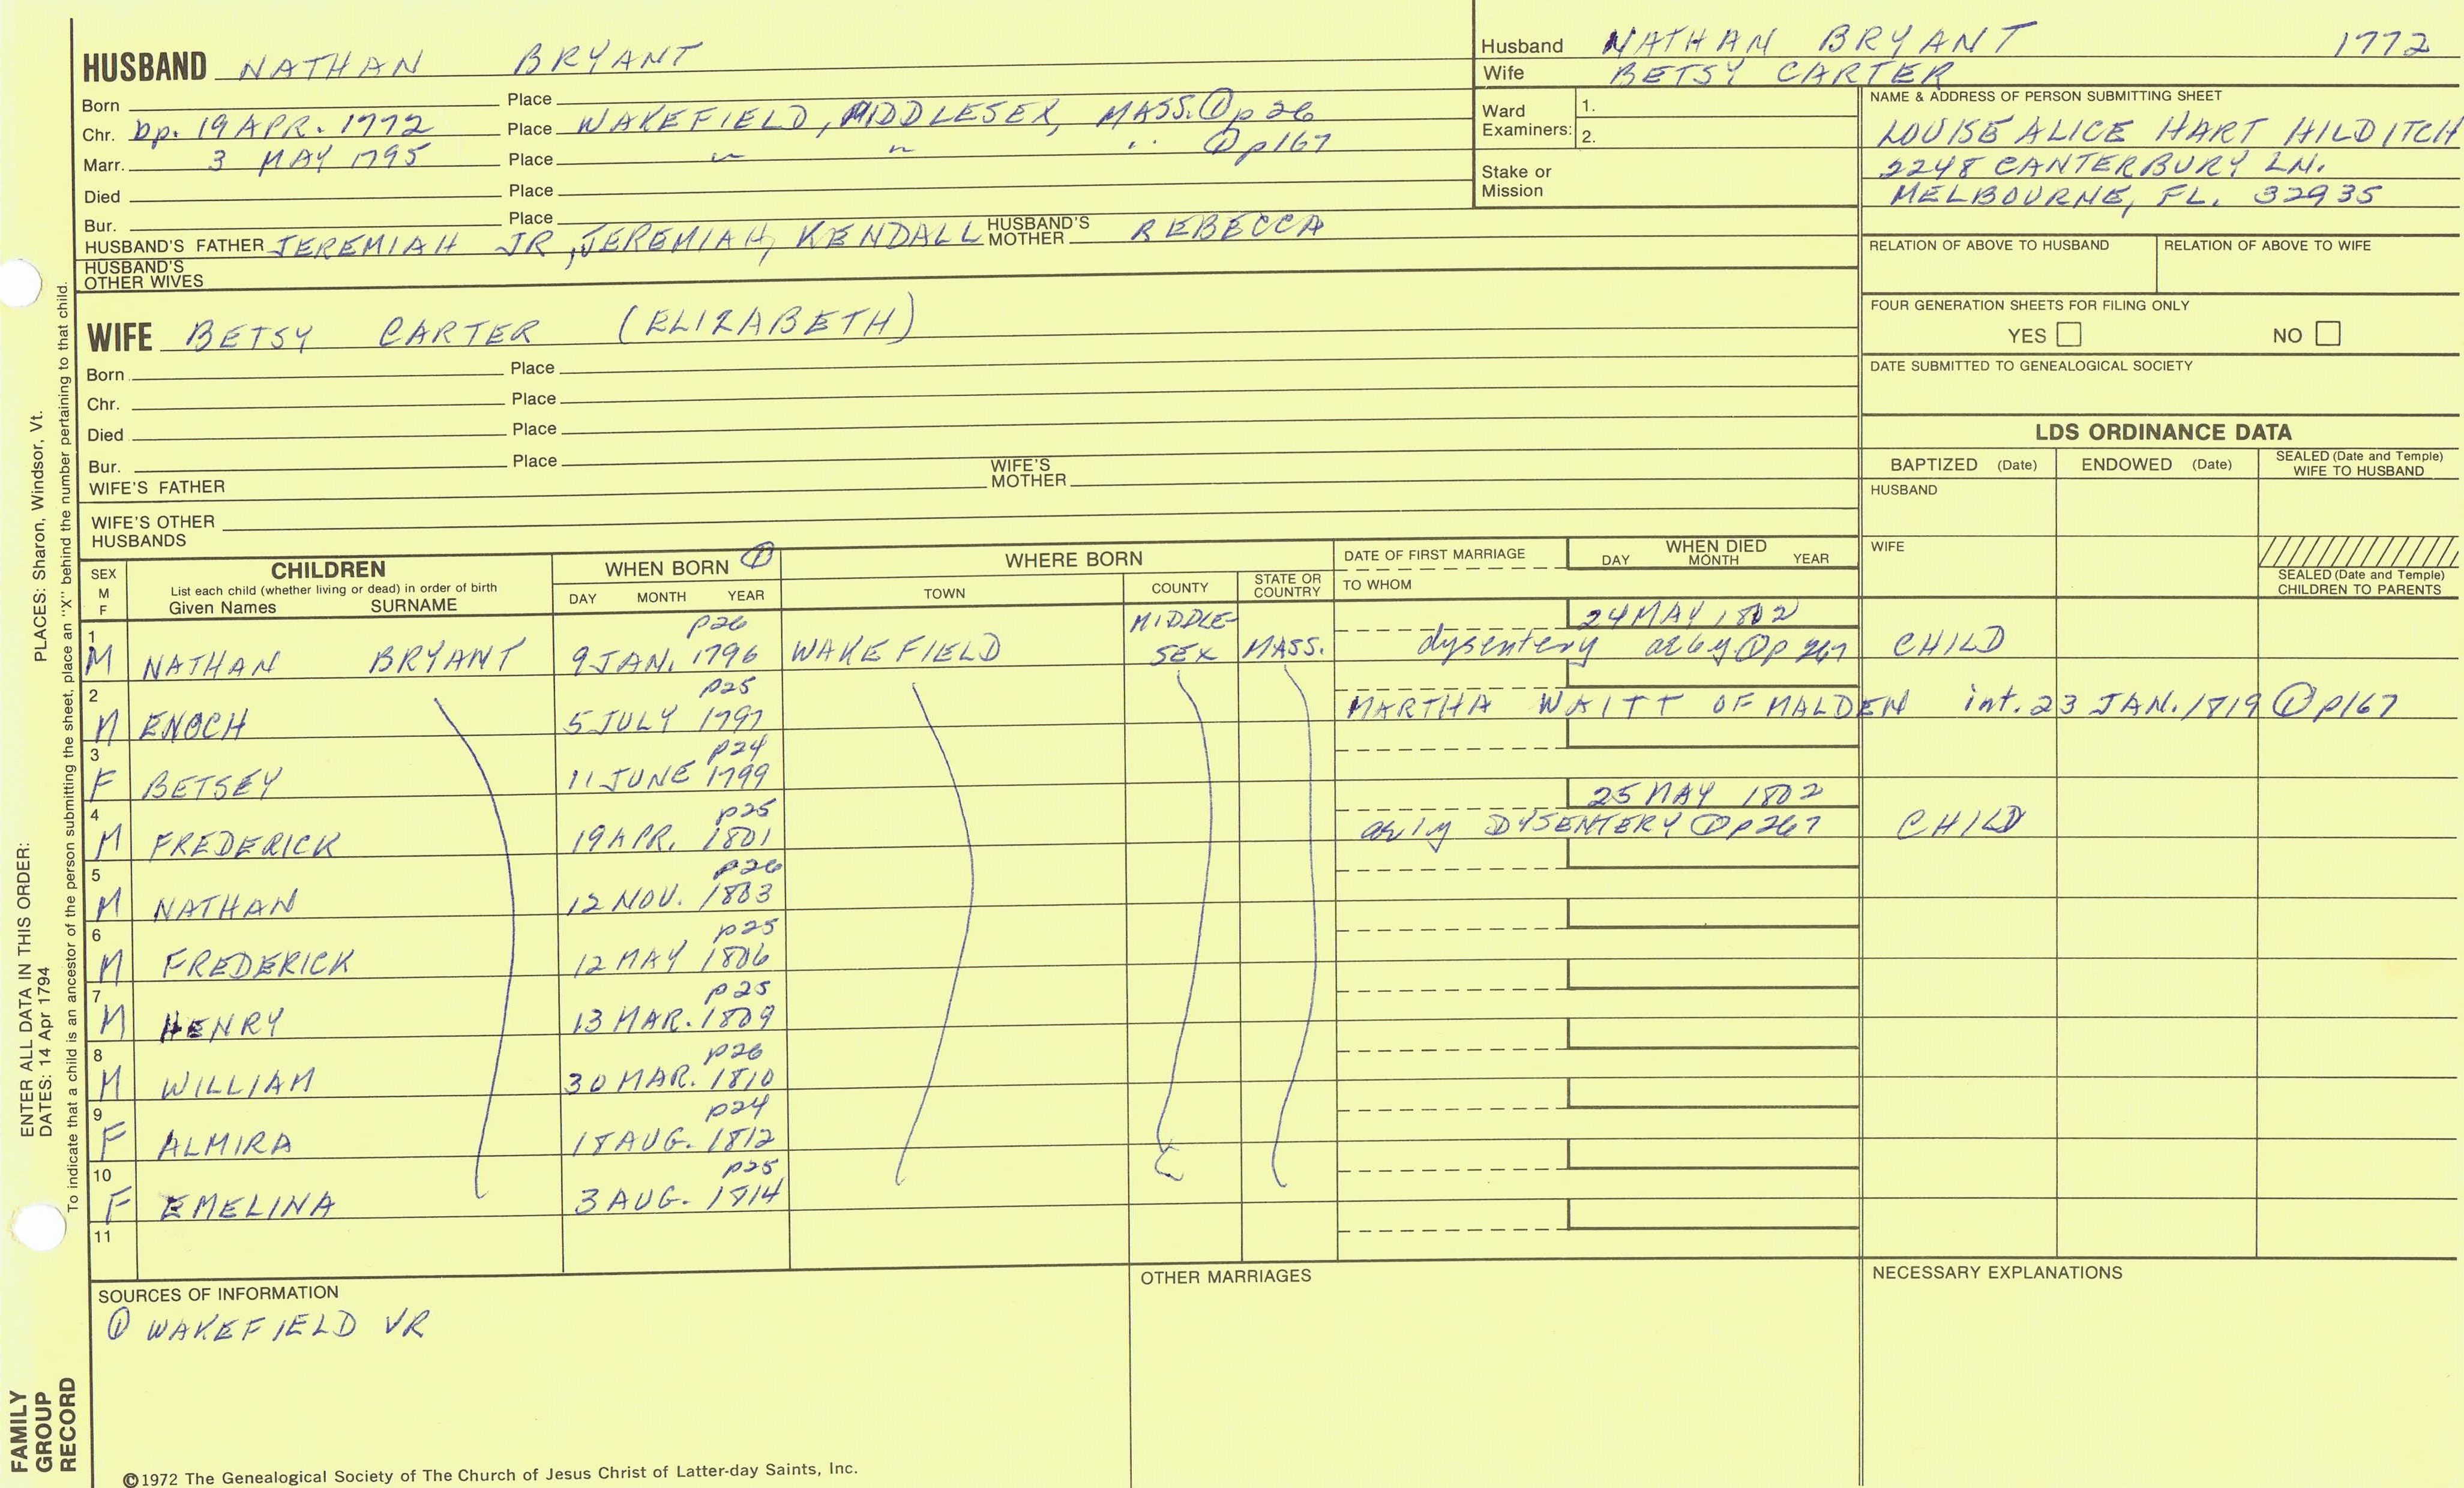 HUSBAND NATHAN BRYANT
Born Place
Chr. bp. 19 APR. 1772 Place WAKEFIELD, MIDDLESEX, MASS. ① p26
Marr. 3 MAY 1795 Place " " " ① p167
Died Place
Bur. Place
HUSBAND'S FATHER JEREMIAH JR, JEREMIAH, KENDALL HUSBAND'S MOTHER REBECCA
HUSBAND'S OTHER WIVES
Husband NATHAN BRYANT 1772
Wife BETSY CARTER
Ward Examiners: 1.
2.
Stake or Mission
NAME & ADDRESS OF PERSON SUBMITTING SHEET
LOUISE ALICE HART HILDITCH
2248 CANTERBURY LN.
MELBOURNE, FL. 32935
RELATION OF ABOVE TO HUSBAND RELATION OF ABOVE TO WIFE
FOUR GENERATION SHEETS FOR FILING ONLY
YES NO
DATE SUBMITTED TO GENEALOGICAL SOCIETY
WIFE BETSY CARTER (ELIZABETH)
Born Place
Chr. Place
Died Place
Bur. Place
WIFE'S FATHER WIFE'S MOTHER
WIFE'S OTHER HUSBANDS
LDS ORDINANCE DATA
BAPTIZED (Date) ENDOWED (Date) SEALED (Date and Temple) WIFE TO HUSBAND
HUSBAND
WIFE
SEALED (Date and Temple) CHILDREN TO PARENTS
SEX M F
CHILDREN
List each child (whether living or dead) in order of birth
Given Names SURNAME
WHEN BORN ①
DAY MONTH YEAR
WHERE BORN
TOWN COUNTY STATE OR COUNTRY
DATE OF FIRST MARRIAGE
TO WHOM
WHEN DIED
DAY MONTH YEAR
1 p26 MIDDLE- 24 MAY 1802
M NATHAN BRYANT 9 JAN. 1796 WAKEFIELD SEX MASS. dysentery ae6y ① p 267 CHILD
2 p25
M ENOCH 5 JULY 1797 MARTHA WAITT OF MALDEN int. 23 JAN. 1819 ① p167
3 p24
F BETSEY 11 JUNE 1799
4 p25 25 MAY 1802
M FREDERICK 19 APR. 1801 ae1y DYSENTERY ① p267 CHILD
5 p26
M NATHAN 12 NOV. 1803
6 p25
M FREDERICK 12 MAY 1806
7 p25
M HENRY 13 MAR. 1809
8 p26
M WILLIAM 30 MAR. 1810
9 p24
F ALMIRA 18 AUG. 1812
10 p25
F EMELINA 3 AUG. 1814
11
SOURCES OF INFORMATION
① WAKEFIELD VR
OTHER MARRIAGES
NECESSARY EXPLANATIONS
©1972 The Genealogical Society of The Church of Jesus Christ of Latter-day Saints, Inc.
FAMILY GROUP RECORD
ENTER ALL DATA IN THIS ORDER:
DATES: 14 Apr 1794
PLACES: Sharon, Windsor, Vt.
To indicate that a child is an ancestor of the person submitting the sheet, place an "X" behind the number pertaining to that child.